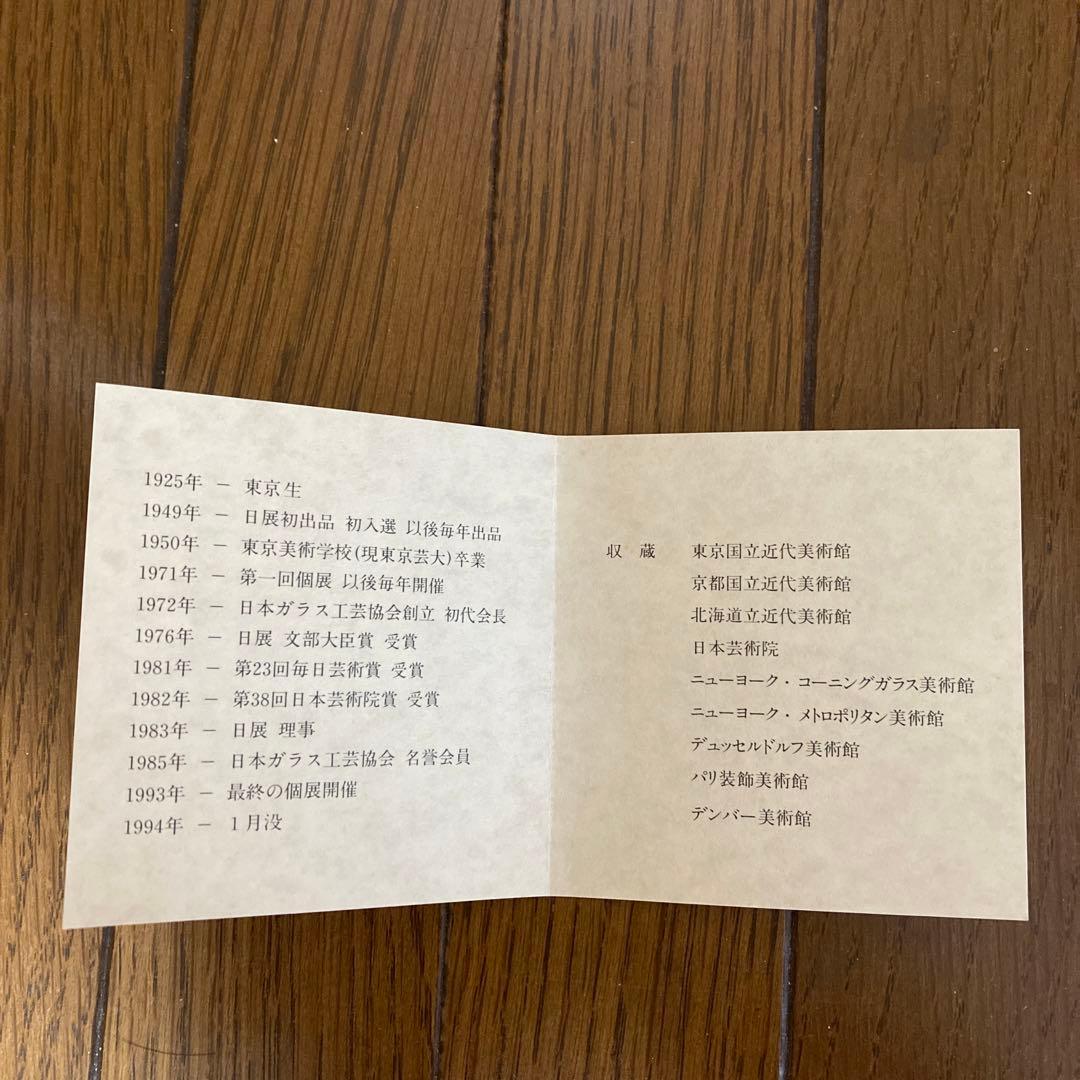 1925年 － 東京生
1949年 － 日展初出品 初入選 以後毎年出品
1950年 － 東京美術学校(現東京芸大)卒業
1971年 － 第一回個展 以後毎年開催
1972年 － 日本ガラス工芸協会創立 初代会長
1976年 － 日展 文部大臣賞 受賞
1981年 － 第23回毎日芸術賞 受賞
1982年 － 第38回日本芸術院賞 受賞
1983年 － 日展 理事
1985年 － 日本ガラス工芸協会 名誉会員
1993年 － 最終の個展開催
1994年 － 1月没
収 蔵 東京国立近代美術館
京都国立近代美術館
北海道立近代美術館
日本芸術院
ニューヨーク・コーニングガラス美術館
ニューヨーク・メトロポリタン美術館
デュッセルドルフ美術館
パリ装飾美術館
デンバー美術館